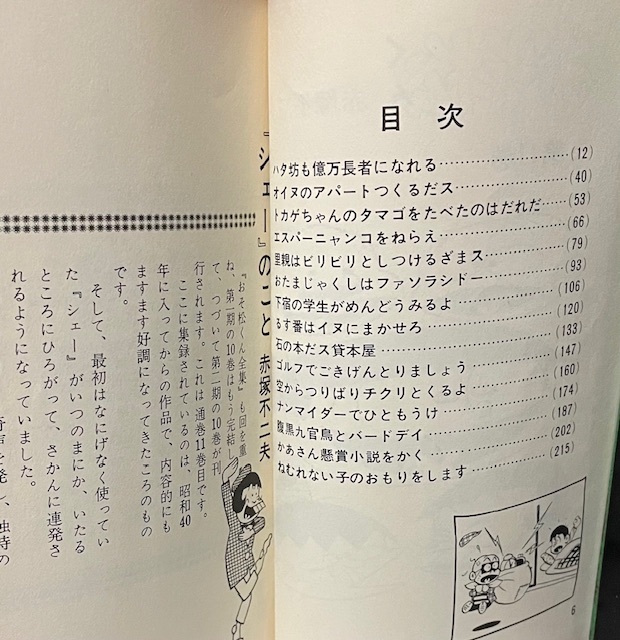 『シェー』のこと 赤塚不二夫
『おそ松くん全集』も回を重
ね、第一期の10巻はもう完結し
て、つづいて第二期の10巻が刊
行されます。これは通巻11巻目です。
ここに集録されているのは、昭和40
年に入ってからの作品で、内容的にも
ますます好調になってきたころのもの
です。
そして、最初はなにげなく使ってい
た『シェー』がいつのまにか、いたる
ところにひろがって、さかんに連発さ
れるようになっていました。
目次
ハタ坊も億万長者になれる……(12)
オイヌのアパートつくるだス……(40)
トカゲちゃんのタマゴをたべたのはだれだ……(53)
エスパーニャンコをねらえ……(66)
里親はビリビリとしつけるざまス……(79)
おたまじゃくしはファソラシドー……(93)
下宿の学生がめんどうみるよ……(106)
るす番はイヌにまかせろ……(120)
石の本だス貸本屋……(133)
ゴルフでごきげんとりましょう……(147)
空からつりばりチクリとくるよ……(160)
ナンマイダーでひともうけ……(174)
腹黒九官鳥とバードデイ……(187)
かあさん懸賞小説をかく……(202)
ねむれない子のおもりをします……(215)
6